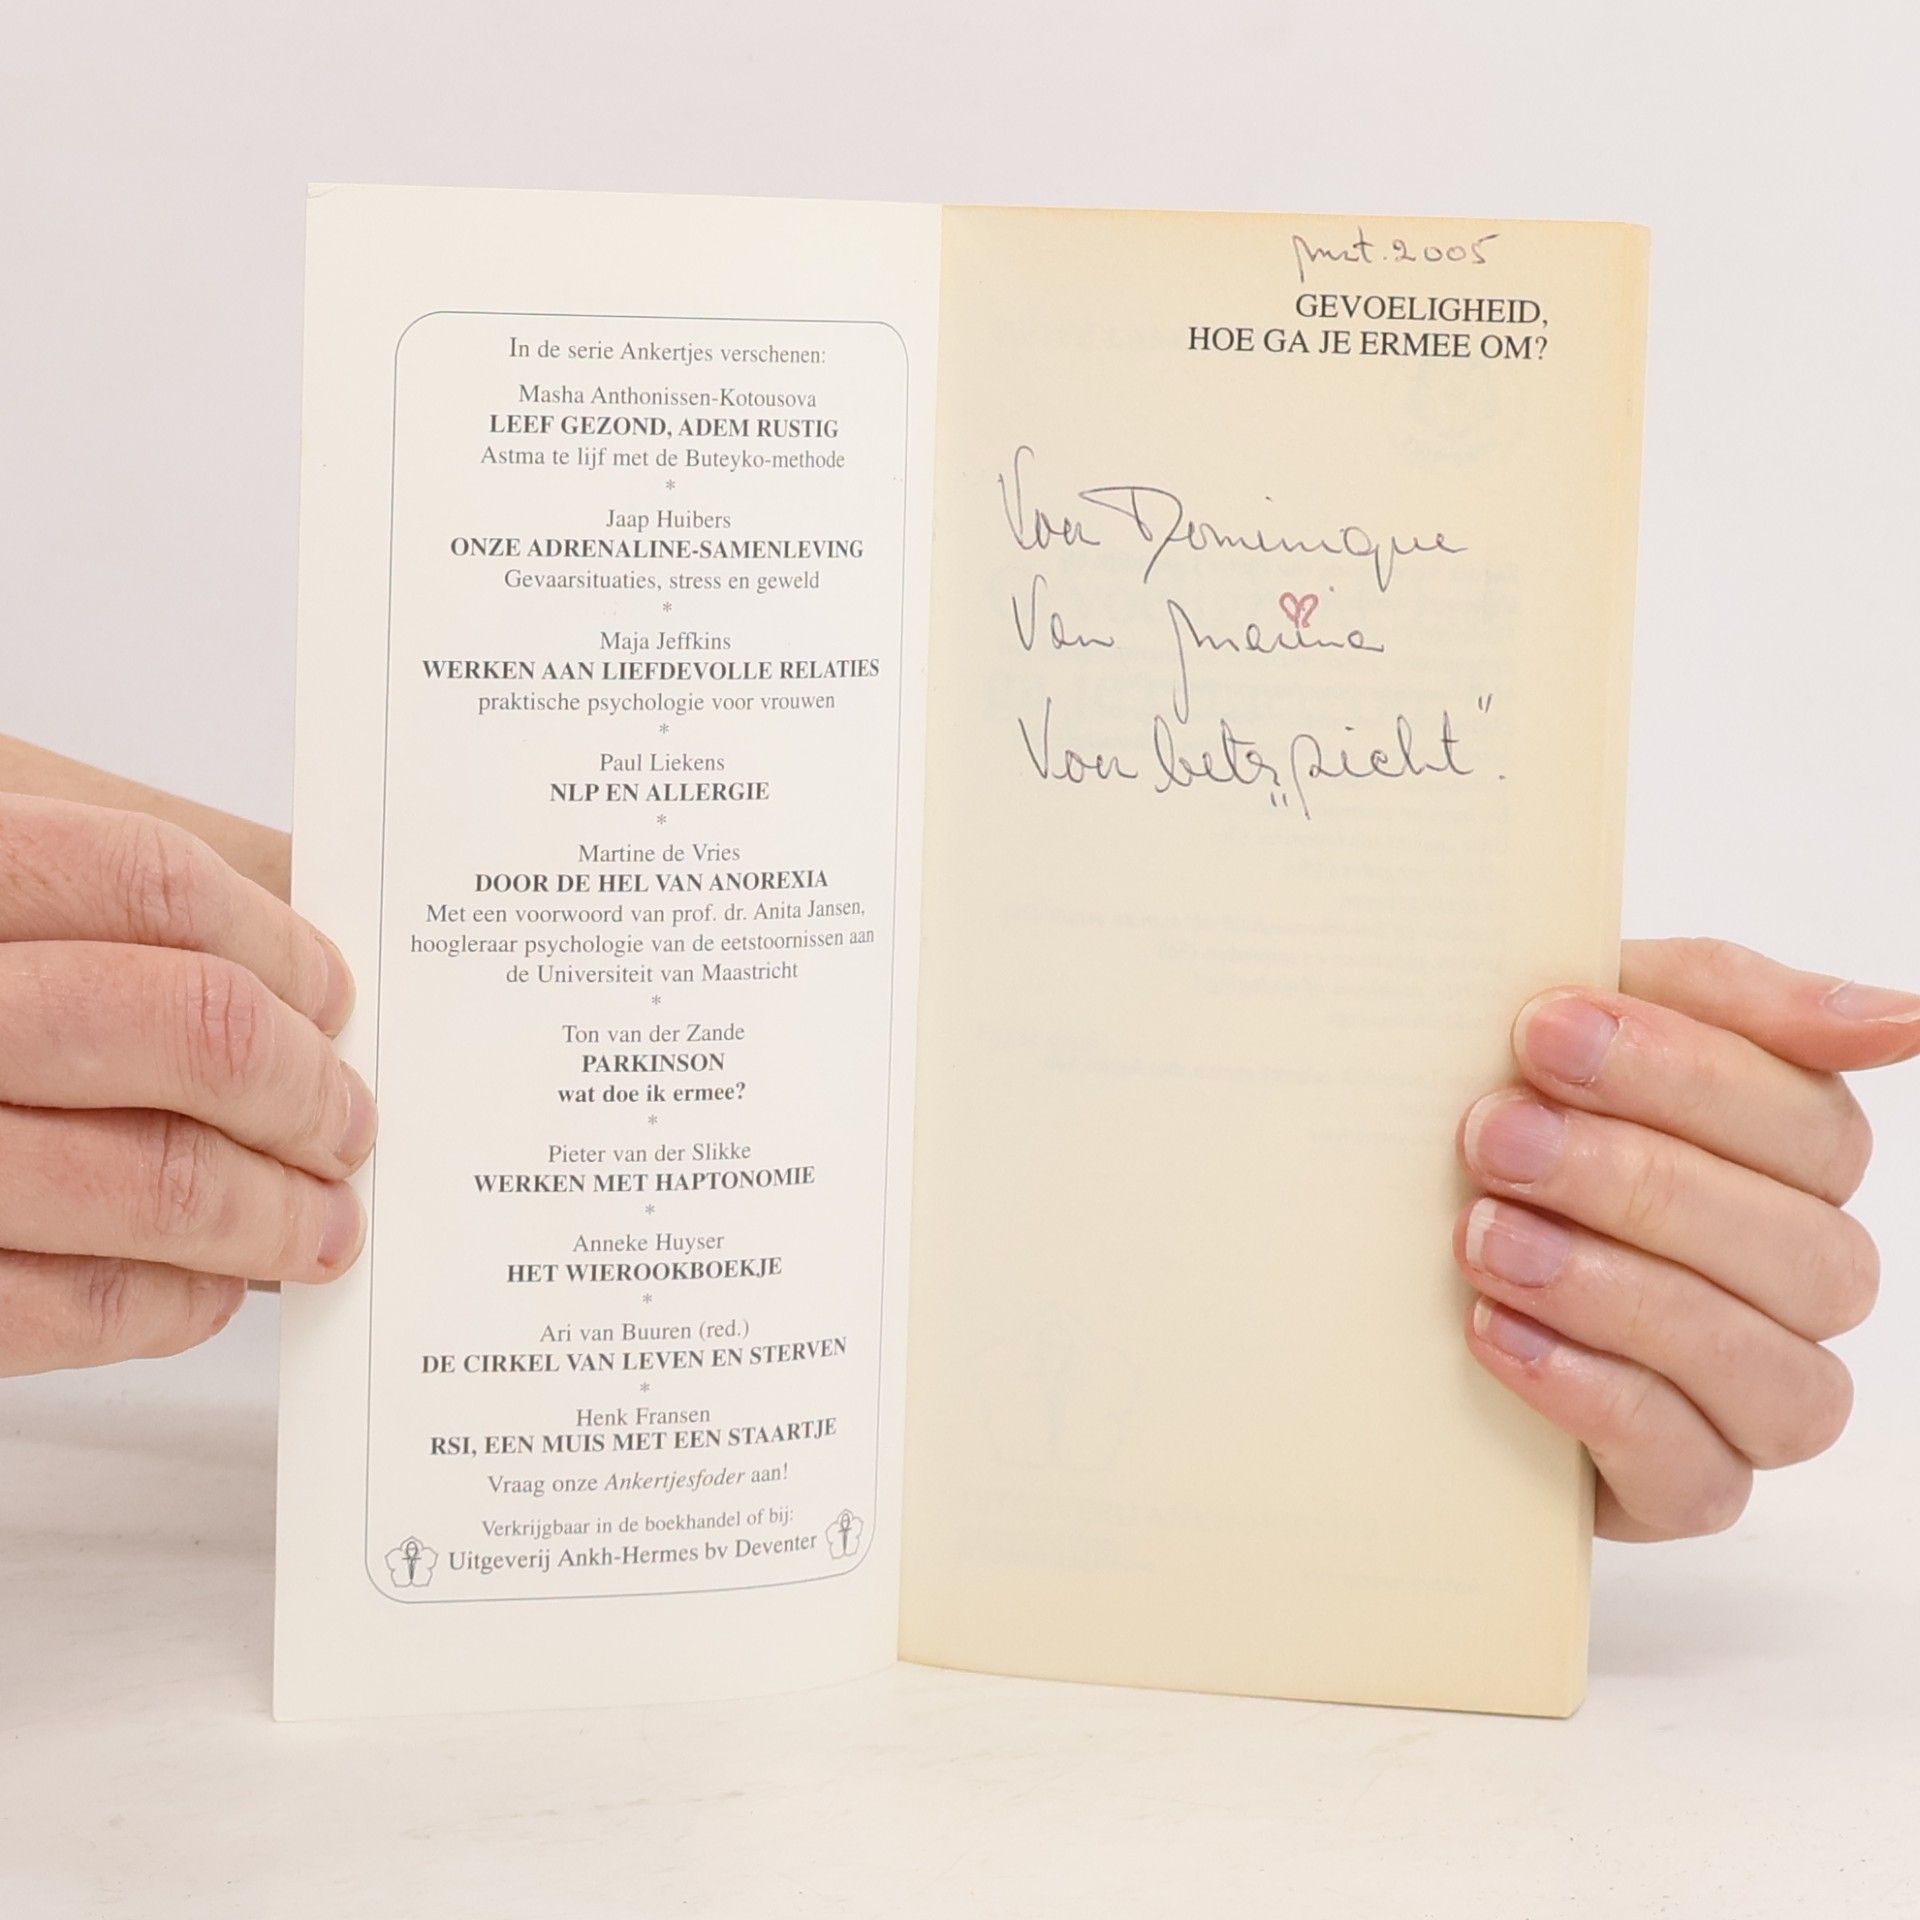 In de serie Ankertjes verschenen:
Masha Anthonissen-Kotousova
LEEF GEZOND, ADEM RUSTIG
Astma te lijf met de Buteyko-methode
*
Jaap Huibers
ONZE ADRENALINE-SAMENLEVING
Gevaarsituaties, stress en geweld
*
Maja Jeffkins
WERKEN AAN LIEFDEVOLLE RELATIES
praktische psychologie voor vrouwen
*
Paul Liekens
NLP EN ALLERGIE
*
Martine de Vries
DOOR DE HEL VAN ANOREXIA
Met een voorwoord van prof. dr. Anita Jansen,
hoogleraar psychologie van de eetstoornissen aan
de Universiteit van Maastricht
*
Ton van der Zande
PARKINSON
wat doe ik ermee?
*
Pieter van der Slikke
WERKEN MET HAPTONOMIE
*
Anneke Huyser
HET WIEROOKBOEKJE
*
Ari van Buuren (red.)
DE CIRKEL VAN LEVEN EN STERVEN
*
Henk Fransen
RSI, EEN MUIS MET EEN STAARTJE
Vraag onze Ankertjesfoder aan!
Verkrijgbaar in de boekhandel of bij:
Uitgeverij Ankh-Hermes bv Deventer
2005
GEVOELIGHEID,
HOE GA JE ERMEE OM?
Voor Dominique
Van Marina
Voor beter „zicht".